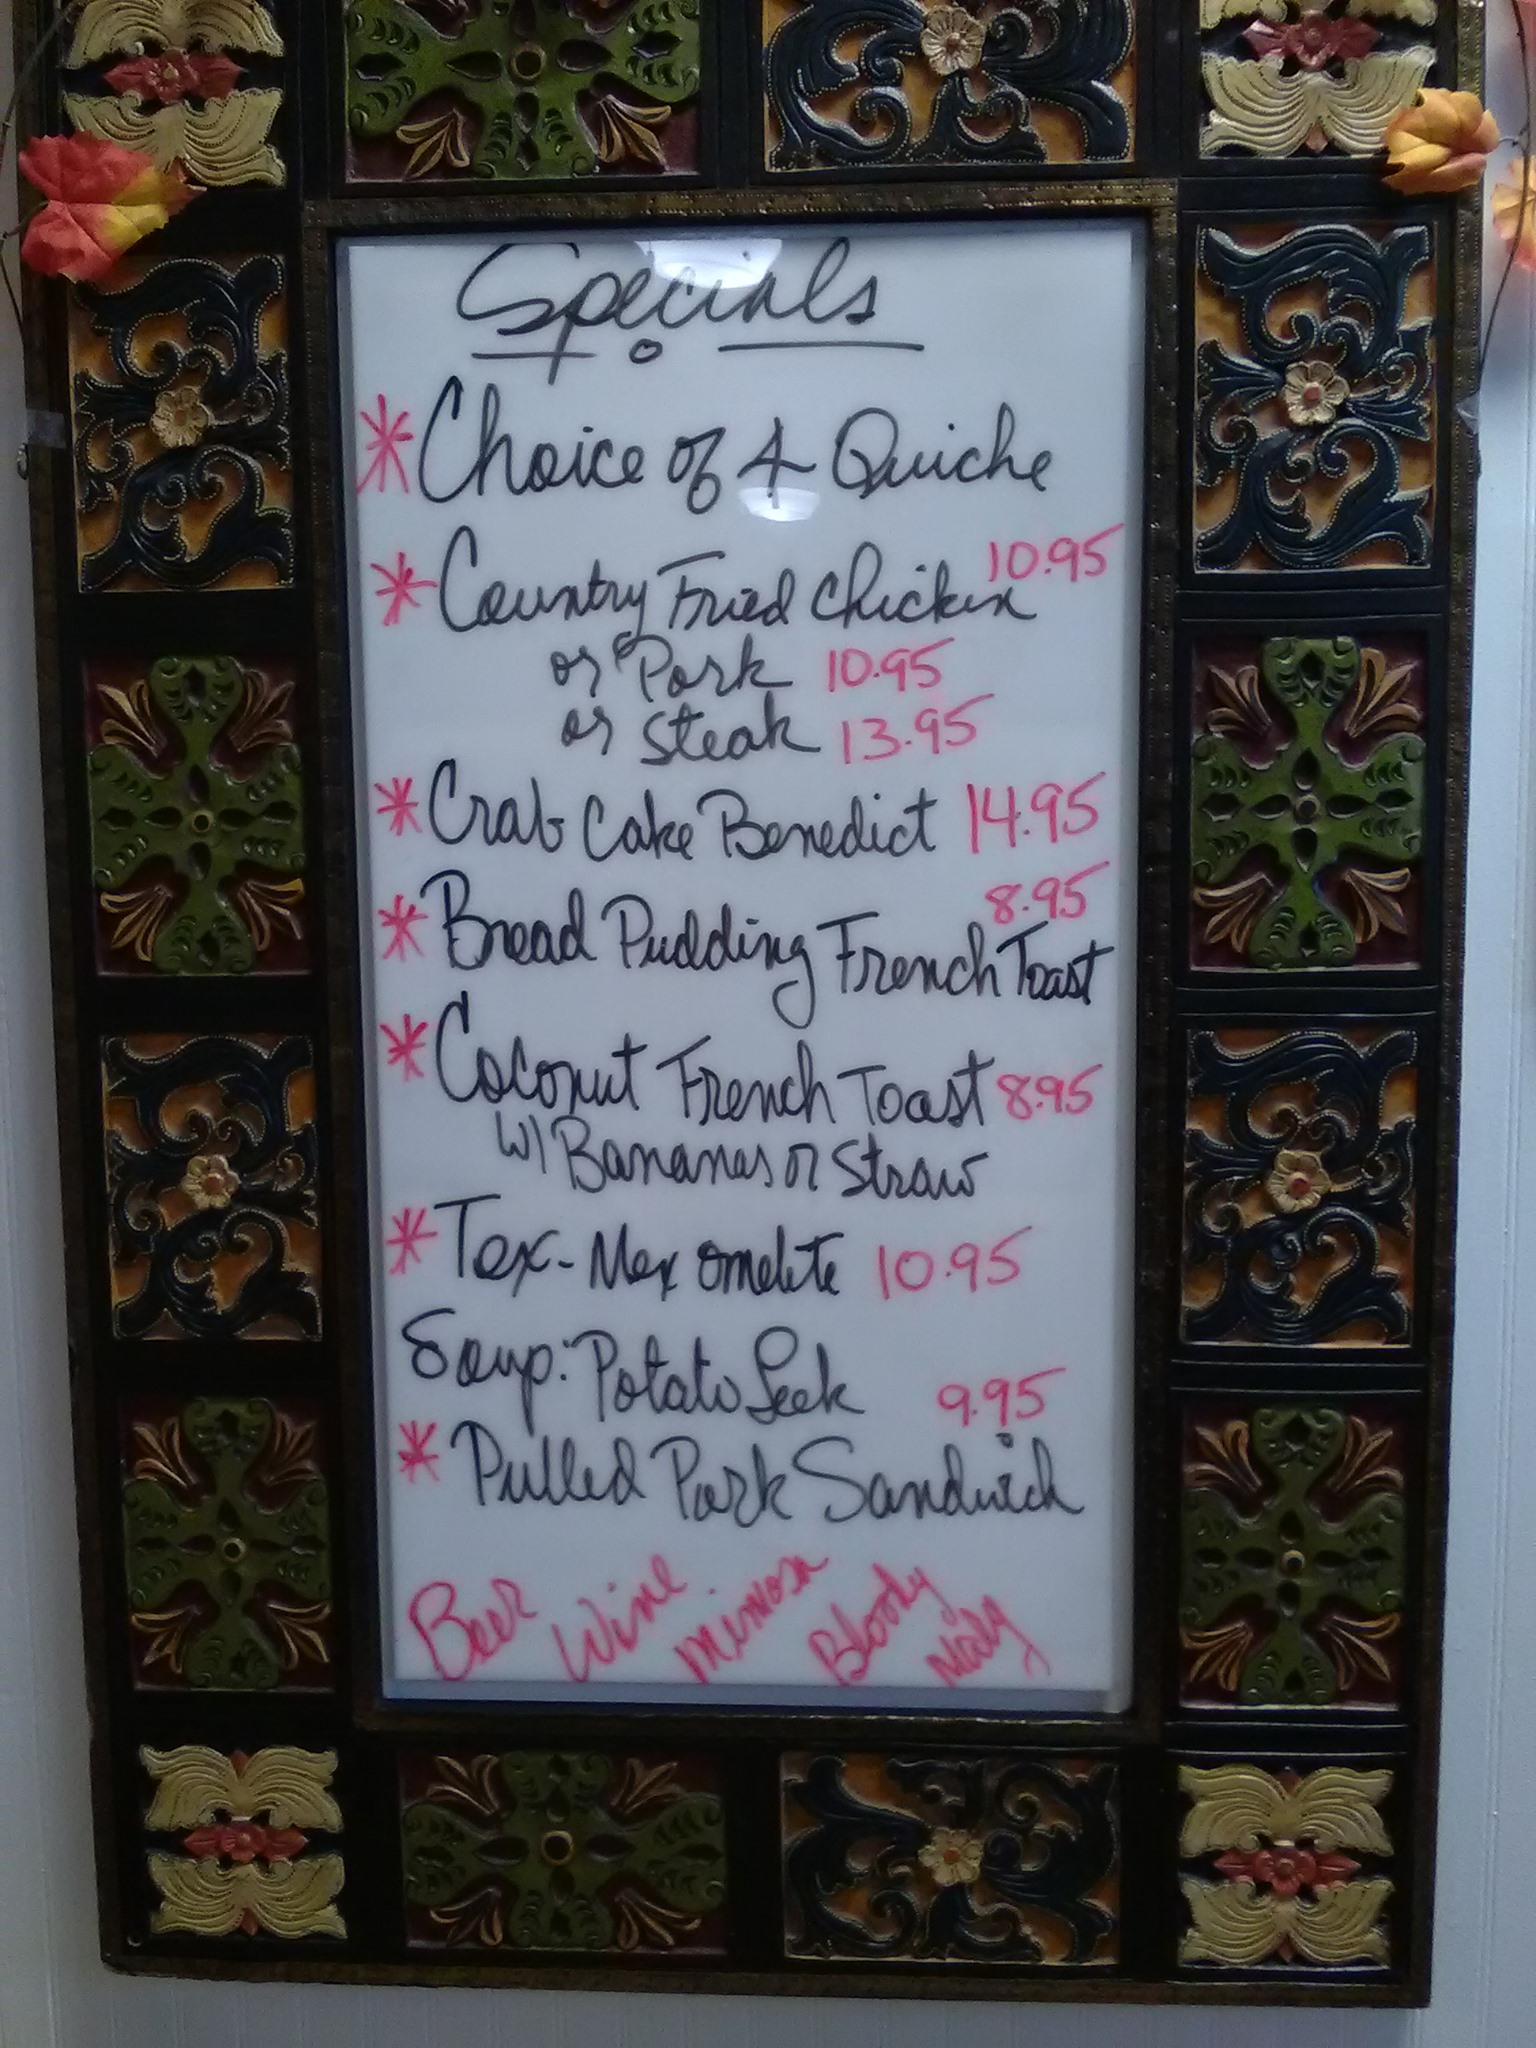 Specials
* Choice of 4 Quiche
10.95
* Country Fried Chicken
or Pork 10.95
or Steak 13.95
* Crab Cake Benedict 14.95
8.95
* Bread Pudding French Toast
* Coconut French Toast 8.95
w/ Bananas or Straw
* Tex-Mex Omelete 10.95
Soup: Potato Leek
9.95
* Pulled Pork Sandwich
Beer Wine Mimosa Bloody Mary